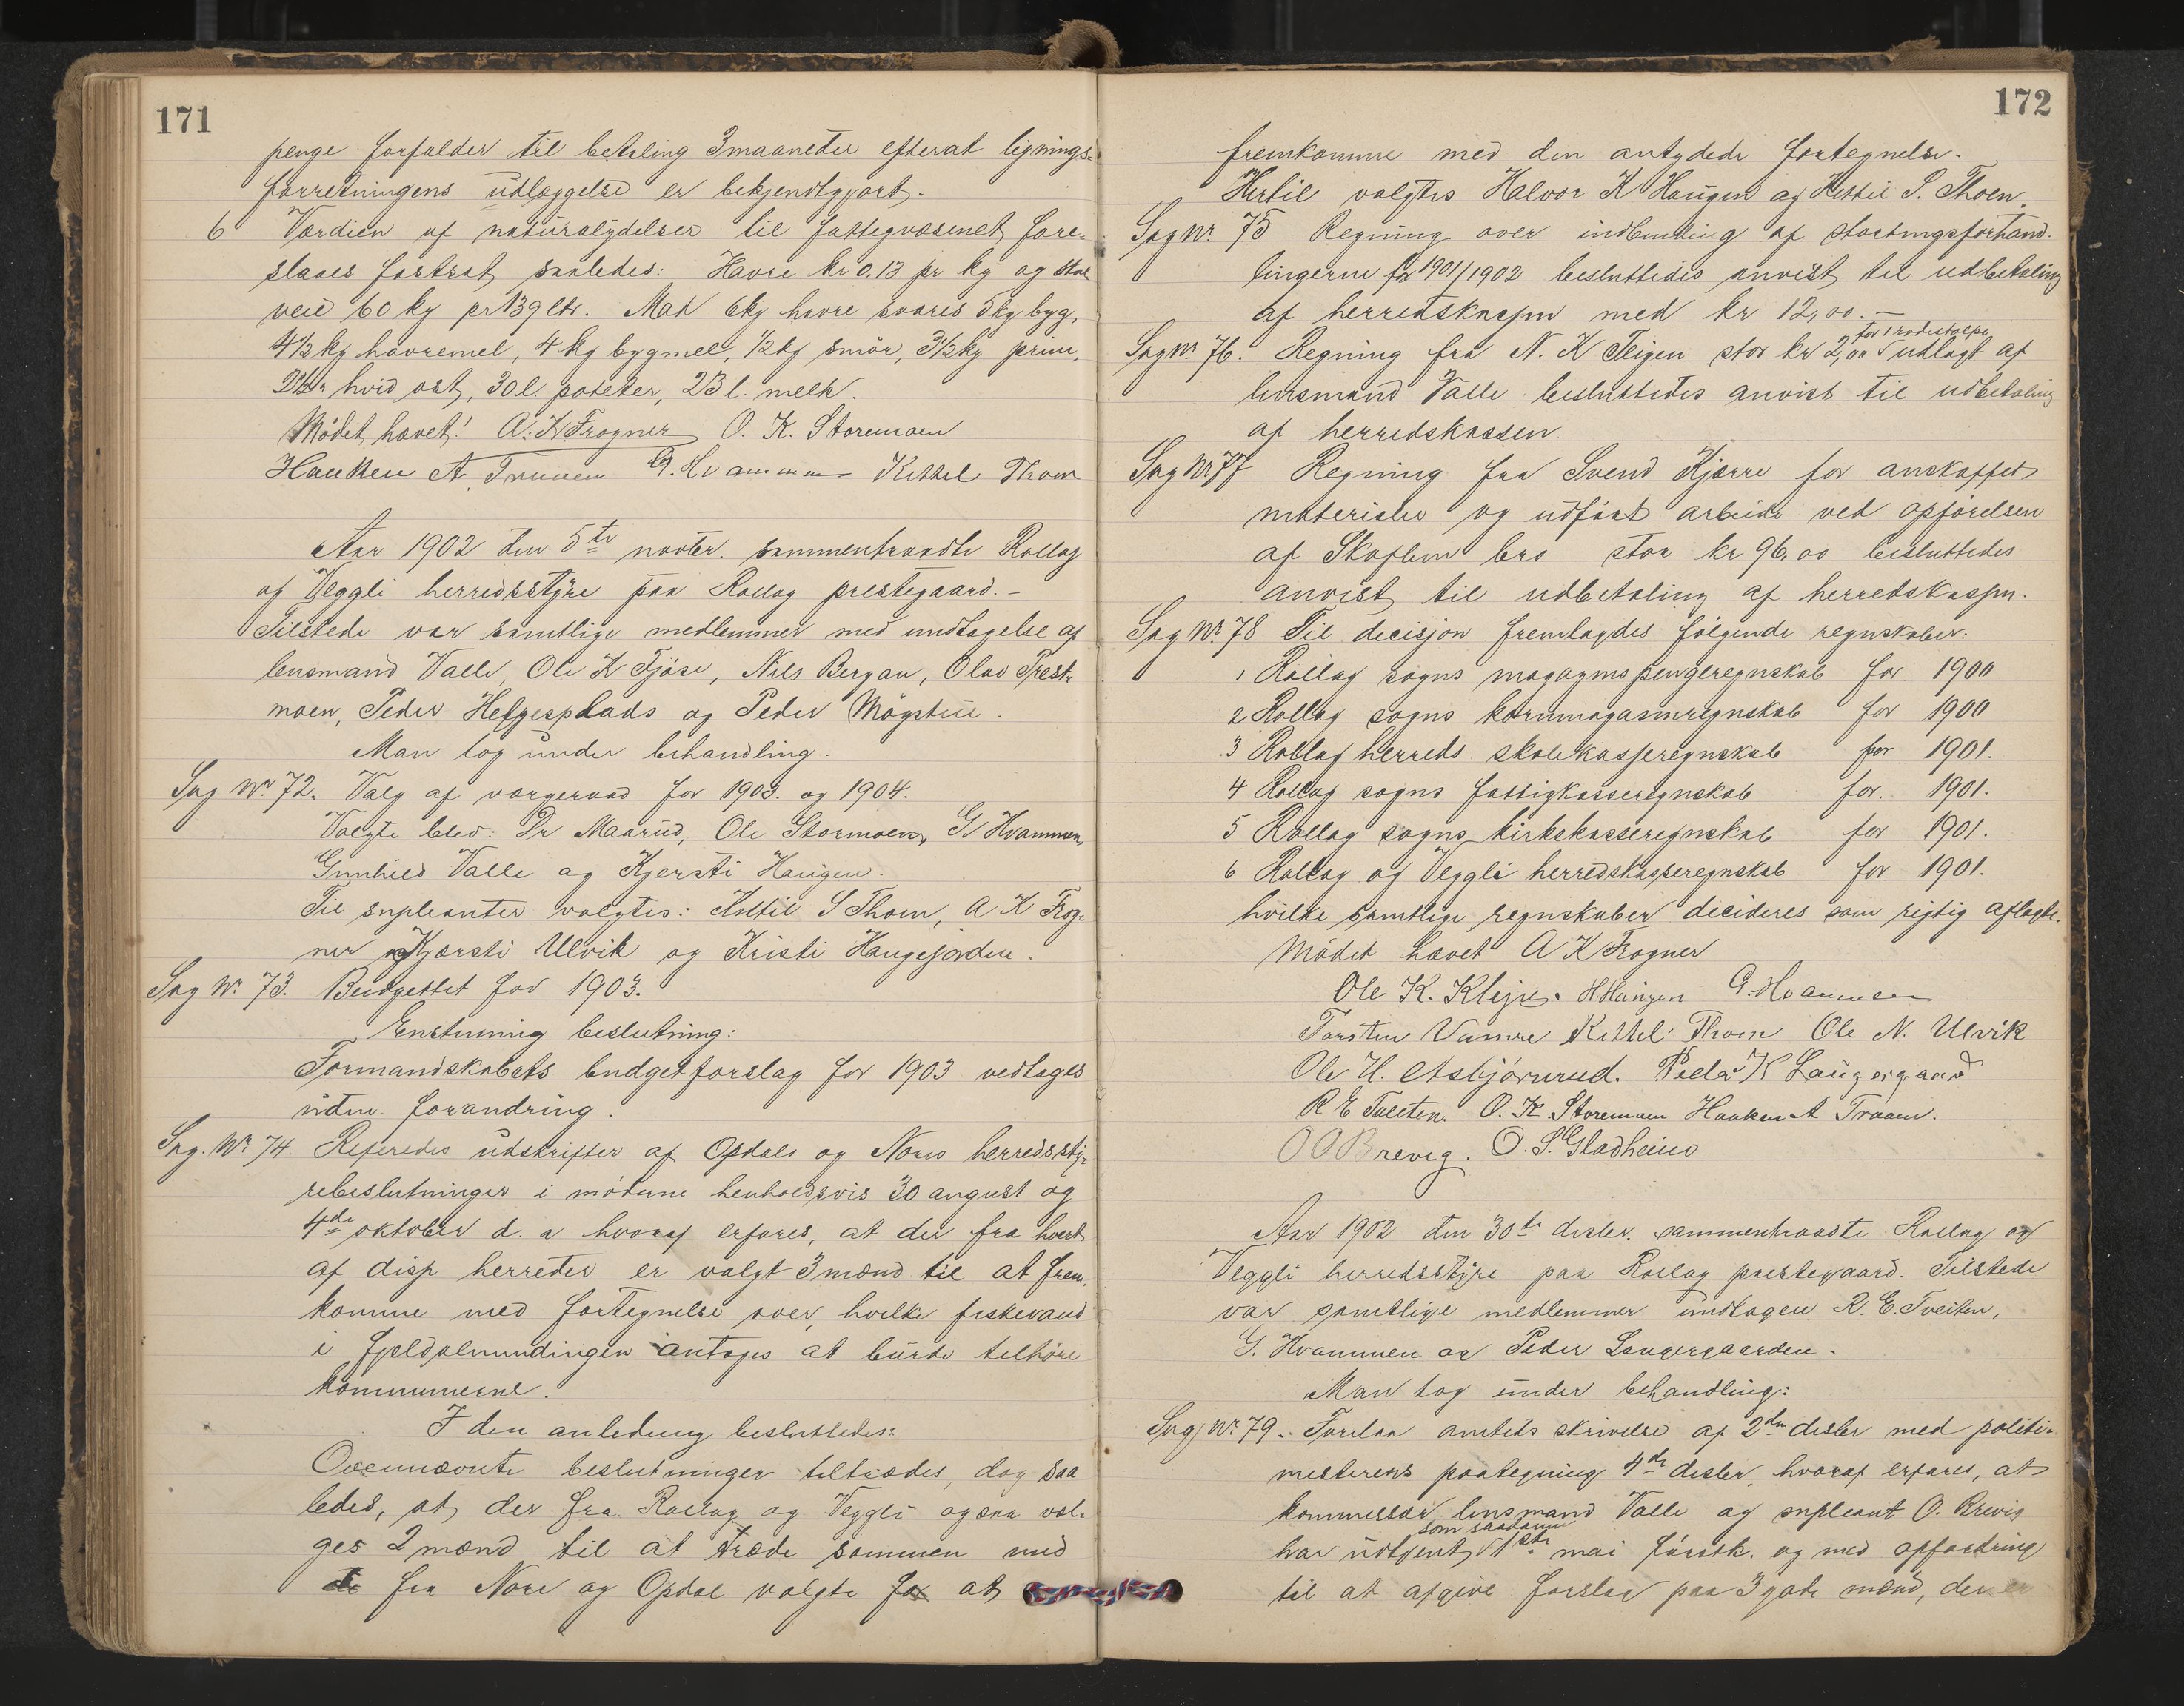 171
penge forfalder til betaling 3 maaneder efterat lignings-
forretningens udlæggelse er bekjendtgjort.
6 Værdien af naturalydelser til fattigvæsenet fore-
slaaes fortsat saaledes: Havre kr 0.13 pr kg og skal
veie 60 kg pr 139 ltr. Mod 6kg havre svares 5kg byg,
4½ kg havremel, 4 kg bygmel, ½ kg smör, 3½ kg prim,
hvid ost, 30 l. poteter, 23 l. melk.
Mödet hævet! A. K. Frogner O. K. Storemoen
Haaken A. Traaen G. Hvammen Kittil Thoen
Aar 1902 den 5te novbr. sammentraadte Rollag
og Veggli herredsstyre paa Rollag prestegaard. -
Tilstede var samtlige medlemmer med undtagelse af
lensmand Valle, Ole K Fjöse, Nils Bergan, Olav Prest-
moen, Peder Helgesplads og Peder Mögstue.
Man tog under behandling.
Sag Nr. 72. Valg af værgeraad for 1903. og 1904.
Valgte blev: Dr Maarud, Ole Stormoen, G Hvammen,
Gunhild Valle og Kjersti Haugen.
Til supleanter valgtes: Kittil S Thoen, A K Frog-
ner Kjersti Ulvik og Kristi Haugejorden.
Sag Nr. 73. Budgettet for 1903.
Enstemmig beslutning:
Formandskabets budgetforslag for 1903 vedtages
uden forandring.
Sag. Nr. 74 Referedes udskrifter af Opdals og Nores herredssty-
rebeslutninger i möderne henholdsvis 30 august og
4de oktober d. a hvoraf erfares, at der fra hvert
af disse herreder er valgt 3 mænd til at frem-
komme med fortegnelse over, hvilke fiskevand
i fjeldalmindingen antages at burde tilhöre
kommunerne.
I den anledning besluttedes:
Ovennævnte beslutninger tiltrædes, dog saa
ledes, at der fra Rollag og Veggli ogsaa væl-
ges 2 mænd til at træde sammen med
de fra Nore og Opdal valgte for at
172
fremkomme med den antydede fortegnelse.
Hertil valgtes Halvor K Haugen og Kittil S. Thoen.
Sag Nr. 75 Regning over indbinding af stortingsforhand-
lingerne for 1901/1902 besluttedes anvist til udbetaling
af herredskassen med kr 12,00. —
for 1 rodestolpe
Sag Nr. 76. Regning fra N. K Teigen stor kr 2,00 udlagt af
lensmand Valle besluttedes anvist til udbetaling
af herredskassen.
Sag Nr 77 Regning fra Svend Kjærre for anskaffet
materialer og udfört arbeide ved opförelsen
af Skoflem bro stor kr 96,00 besluttedes
anvist til udbetaling af herredskassen.
Sag Nr. 78 Til decisjon fremlagdes fölgende regnskaber:
1 Rollag sogns magasinspengeregnskab for 1900
2 Rollag sogns kornmagasinregnskab for 1900
3 Rollag herreds skolekasseregnskab for 1901.
4 Rollag sogns fattigkasseregnskab for. 1901.
5 Rollag sogns kirkekasseregnskab for 1901.
6 Rollag og Veggli herredskasseregnskab for 1901.
hvilke samtlige regnskaber decideres som rigtig aflagte.
Mödet hævet A K Frogner
Ole K. Kleju. H. Haugen G. Hvammen
Torsten Vamre Kittil Thoen Ole N. Ulvik
Ole H. Asbjörnrud. Peder K Laugergaard
R E Tveiten. O. K. Storemoen Haaken A Traaen.
O O Brevig. O. S. Gladheim
Aar 1902 den 30te desbr. sammentraadte Rollag og
Veggli herredsstyre paa Rollag prestegaard. Tilstede
var samtlige medlemmer undtagen R. E. Tveiten,
G. Hvammen og Peder Laugergaarden.
Man tog under behandling:
Sag Nr. 79. Forelaa amtets skrivelse af 2den desbr med politi-
mesterens paategning 4de desbr, hvoraf erfares, at
kommissær lensmand Valle og supleant O. Brevig
som saadanne
har udtjent 1ste mai förstk. og med opfordring
til at afgive forslag paa 3 gode mænd, der er